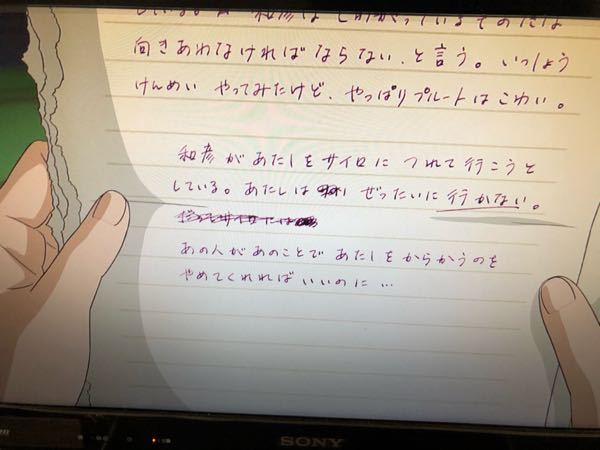 向きあわなければならない、と言う。いっしょう
けんめい やってみたけど、やっぱりプルートはこわい。
和彦があたしをサイロに つれて行こうと
している。あたしは ぜったいに行かない。
あの人があのことで あたしをからかうのを
やめてくれれば いいのに…
SONY